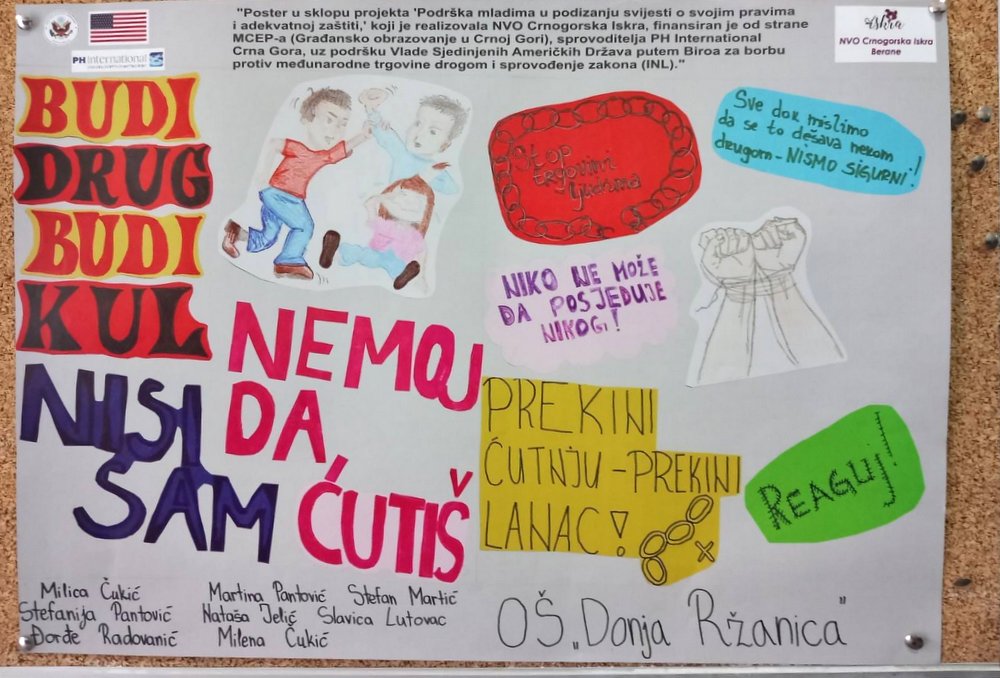 "Poster u sklopu projekta 'Podrška mladima u podizanju svijesti o svojim pravima
i adekvatnoj zaštiti,' koji je realizovala NVO Crnogorska Iskra, finansiran je od strane
MCEP-a (Građansko obrazovanje u Crnoj Gori), sprovoditelja PH International
Crna Gora, uz podršku Vlade Sjedinjenih Američkih Država putem Biroa za borbu
protiv međunarodne trgovine drogom i sprovođenje zakona (INL)."
PH International
iskra
NVO Crnogorska Iskra
Berane
BUDI
DRUG
BUDI
KUL
NISI
SAM
NEMOJ
DA
ĆUTIŠ
Stop
trgovini
ljudima
Sve dok mislimo
da se to dešava nekom
drugom - NISMO SIGURNI!
NIKO NE MOŽE
DA POSJEDUJE
NIKOG!
PREKINI
ĆUTNJU - PREKINI
LANAC!
REAGUJ!
Milica Čukić
Stefanija Pantović
Đorđe Radovanić
Martina Pantović Stefan Martić
Nataša Jelić Slavica Lutovac
Milena Čukić
OŠ „Donja Ržanica"